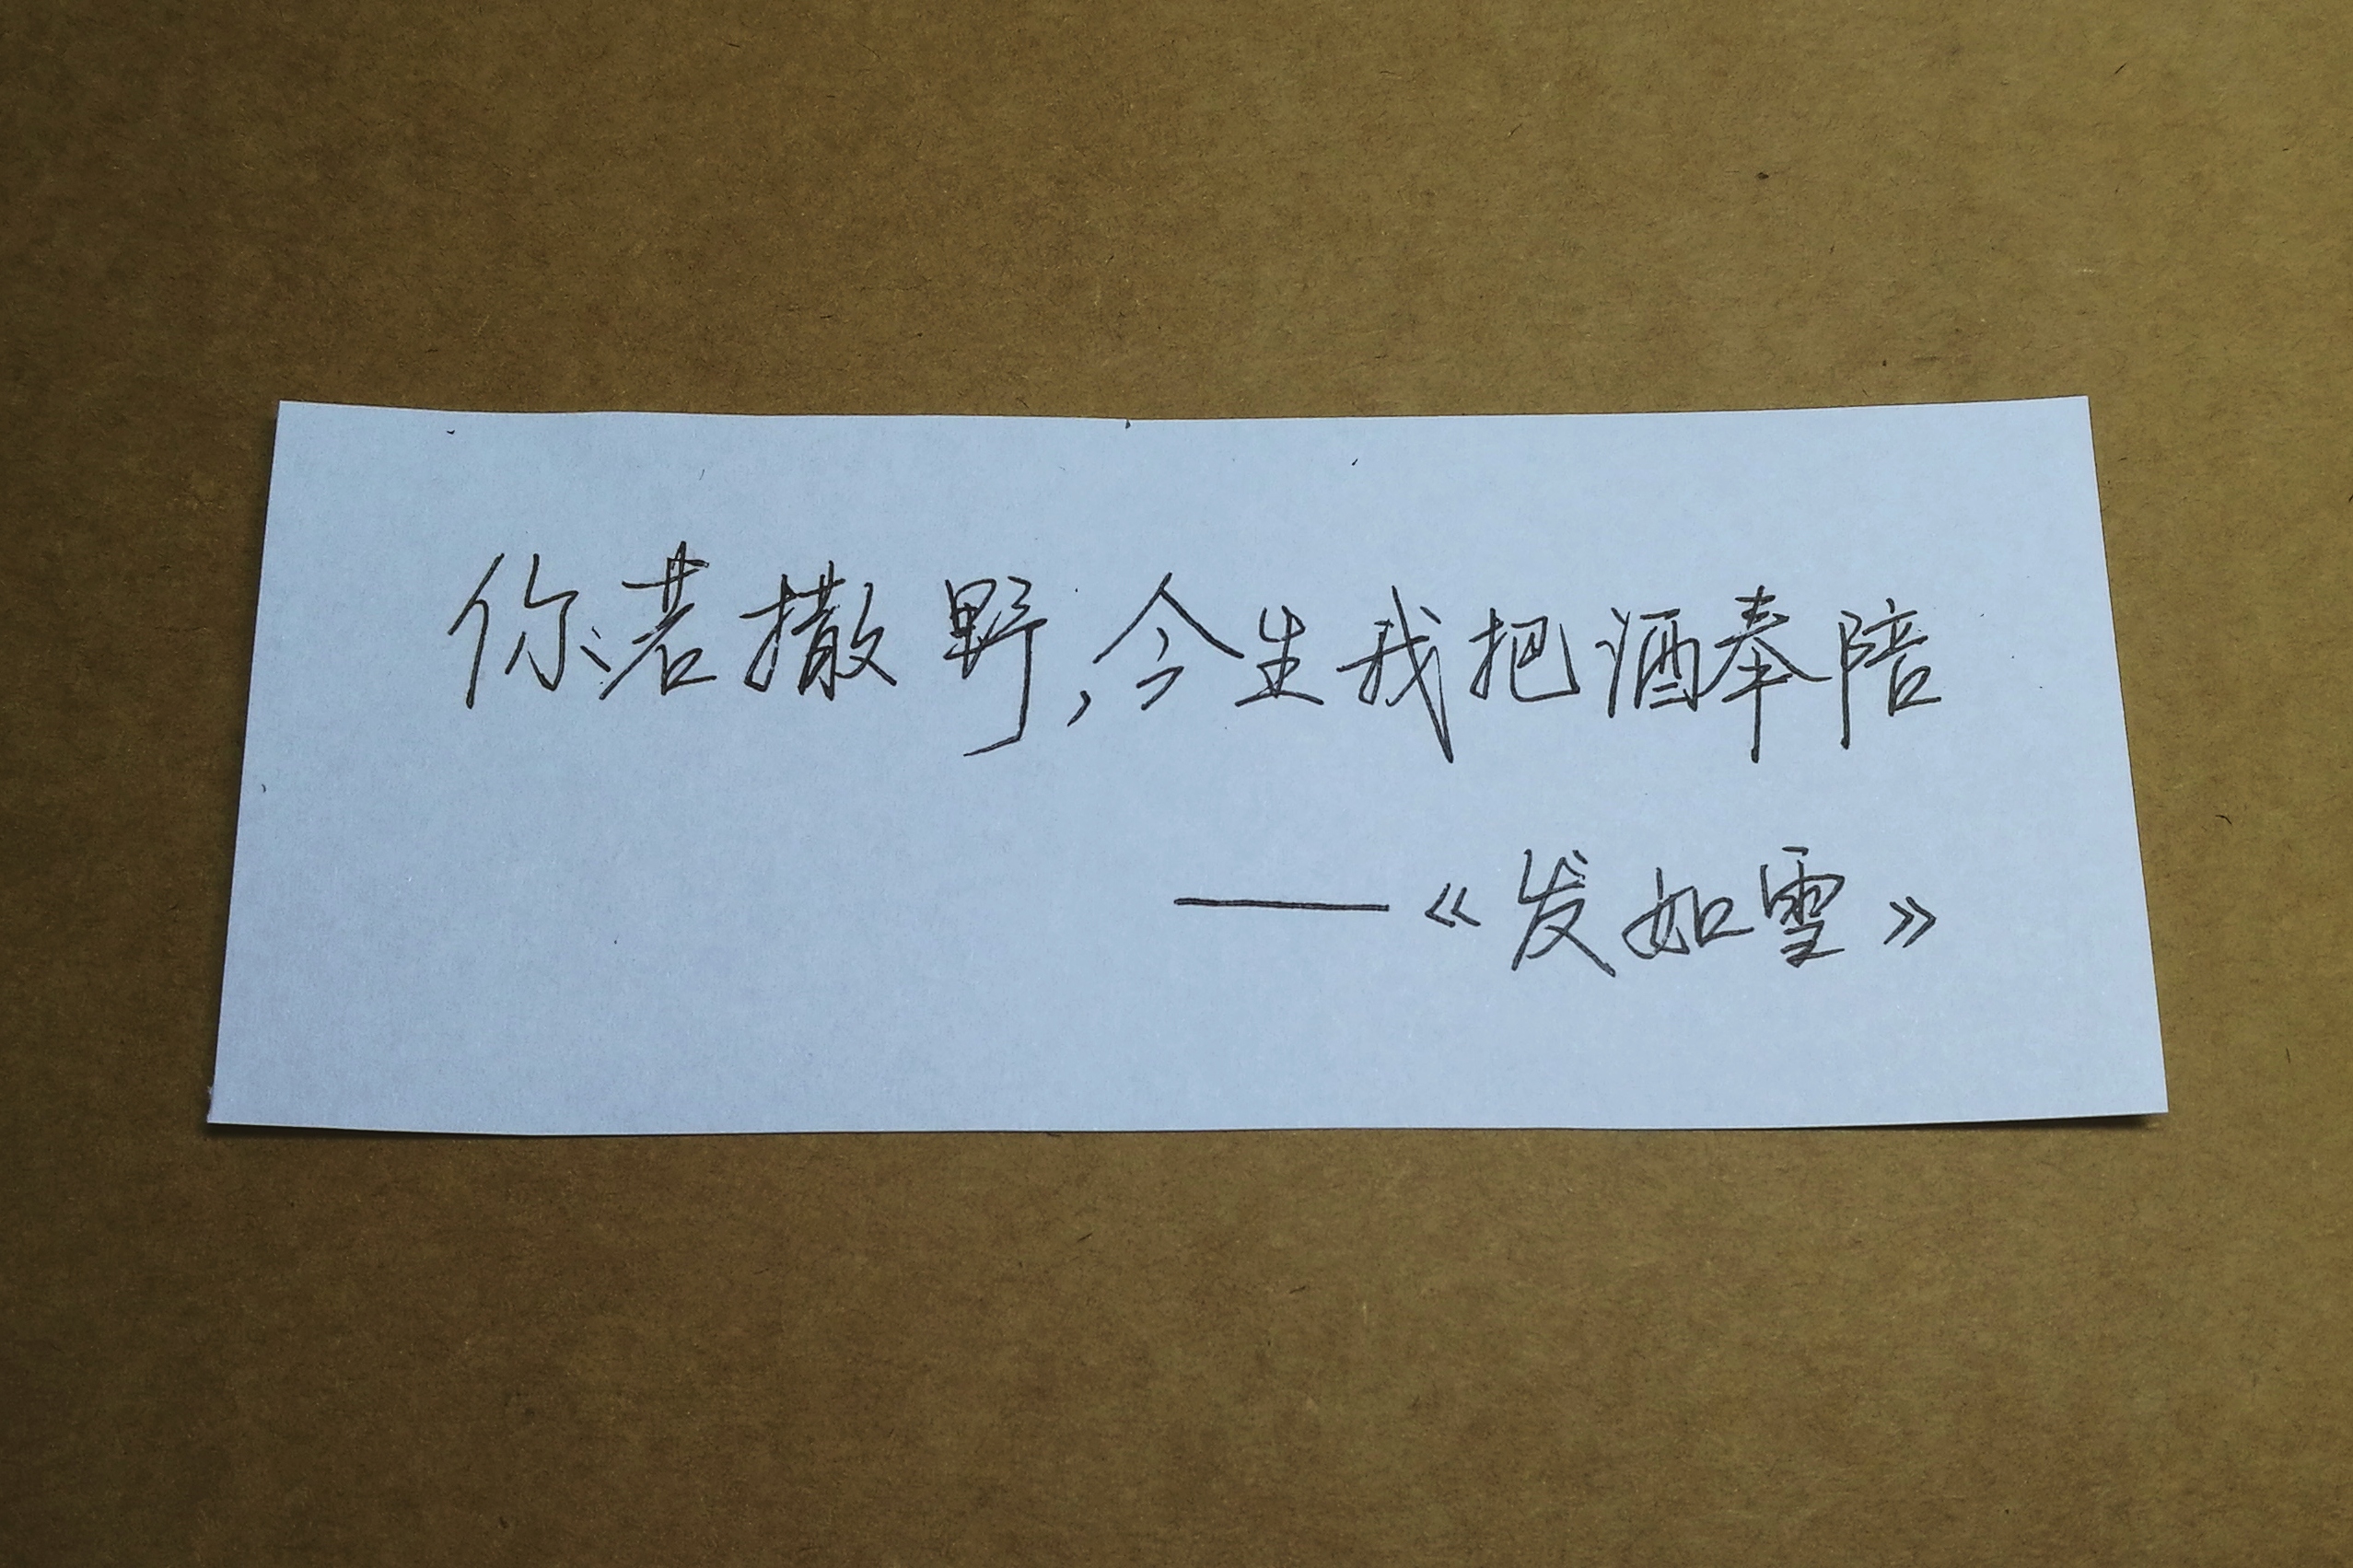 你若撒野,今生我把酒奉陪
——《发如雪》